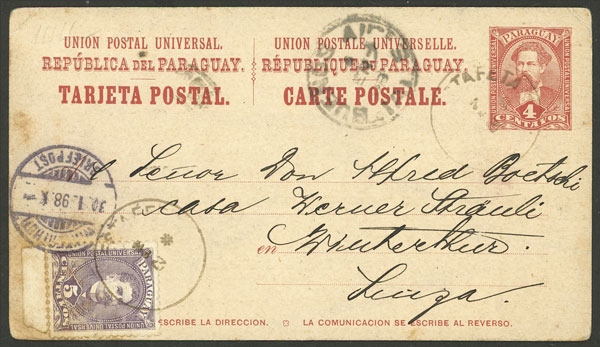 UNION POSTAL UNIVERSAL.
REPÚBLICA DEL PARAGUAY.
TARJETA POSTAL.
UNION POSTALE UNIVERSELLE.
RÉPUBLIQUE DU PARAGUAY.
CARTE POSTALE.
PARAGUAY
UNION POSTAL UNIVERSAL
4
CENTAVOS
TAFETA
Señor Don Alfred Boetschi
casa Werner Sträuli
en Winterthur.
Suiza.
BRIEFPOST
30.I.98.X
WINTERTHUR
PARAGUAY
UNION POSTAL UNIVERSAL
5
CENTAVOS
ESCRIBE LA DIRECCION.
LA COMUNICACION SE ESCRIBE AL REVERSO.